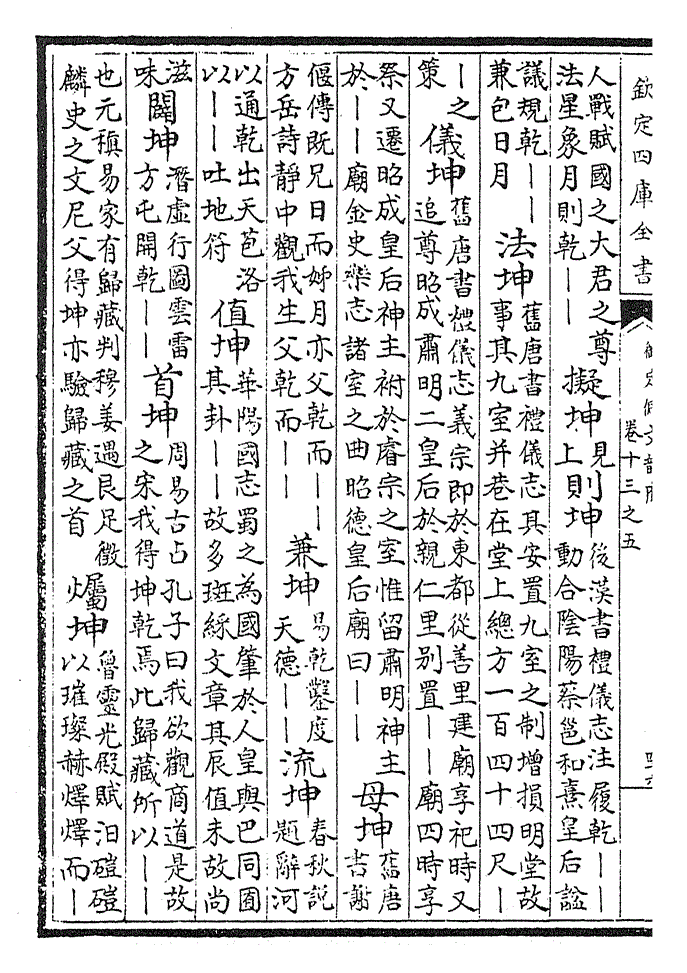 欽定四庫全書
卷十三之五
人戰賦國之大君之尊
法星象月則乾――
擬坤
見
上
則坤
後漢書禮儀志注履乾――
動合陰陽蔡邕和熹皇后諡
議規乾――
兼包日月
法坤
舊唐書禮儀志其安置九室之制增損明堂故
事其九室并巷在堂上總方一百四十四尺―
―之
策
儀坤
舊唐書禮儀志義宗即於東都從善里建廟享祀時又
追尊昭成肅明二皇后於親仁里别置――廟四時享
祭又遷昭成皇后神主祔於睿宗之室惟留肅明神主
於――廟金史樂志諸室之曲昭德皇后廟曰――
母坤
舊唐
書謝
偃傳既兄日而姊月亦父乾而――
方岳詩静中觀我生父乾而――
兼坤
易乾鑿度
天德――
流坤
春秋說
題辭河
以通乾出天苞洛
以――吐地符
值坤
華陽國志蜀之為國肇於人皇與巴同囿
其卦――故多斑綵文章其辰值未故尚
滋
味
闢坤
潛虛行圖雲雷
方屯開乾――
首坤
周易古占孔子曰我欲觀商道是故
之宋我得坤乾焉此歸藏所以――
也元稹易家有歸藏判穆姜遇艮足徵
麟史之文尼父得坤亦驗歸藏之首
爥坤
魯靈光殿賦汨磑磑
以璀璨赫燡燡而―